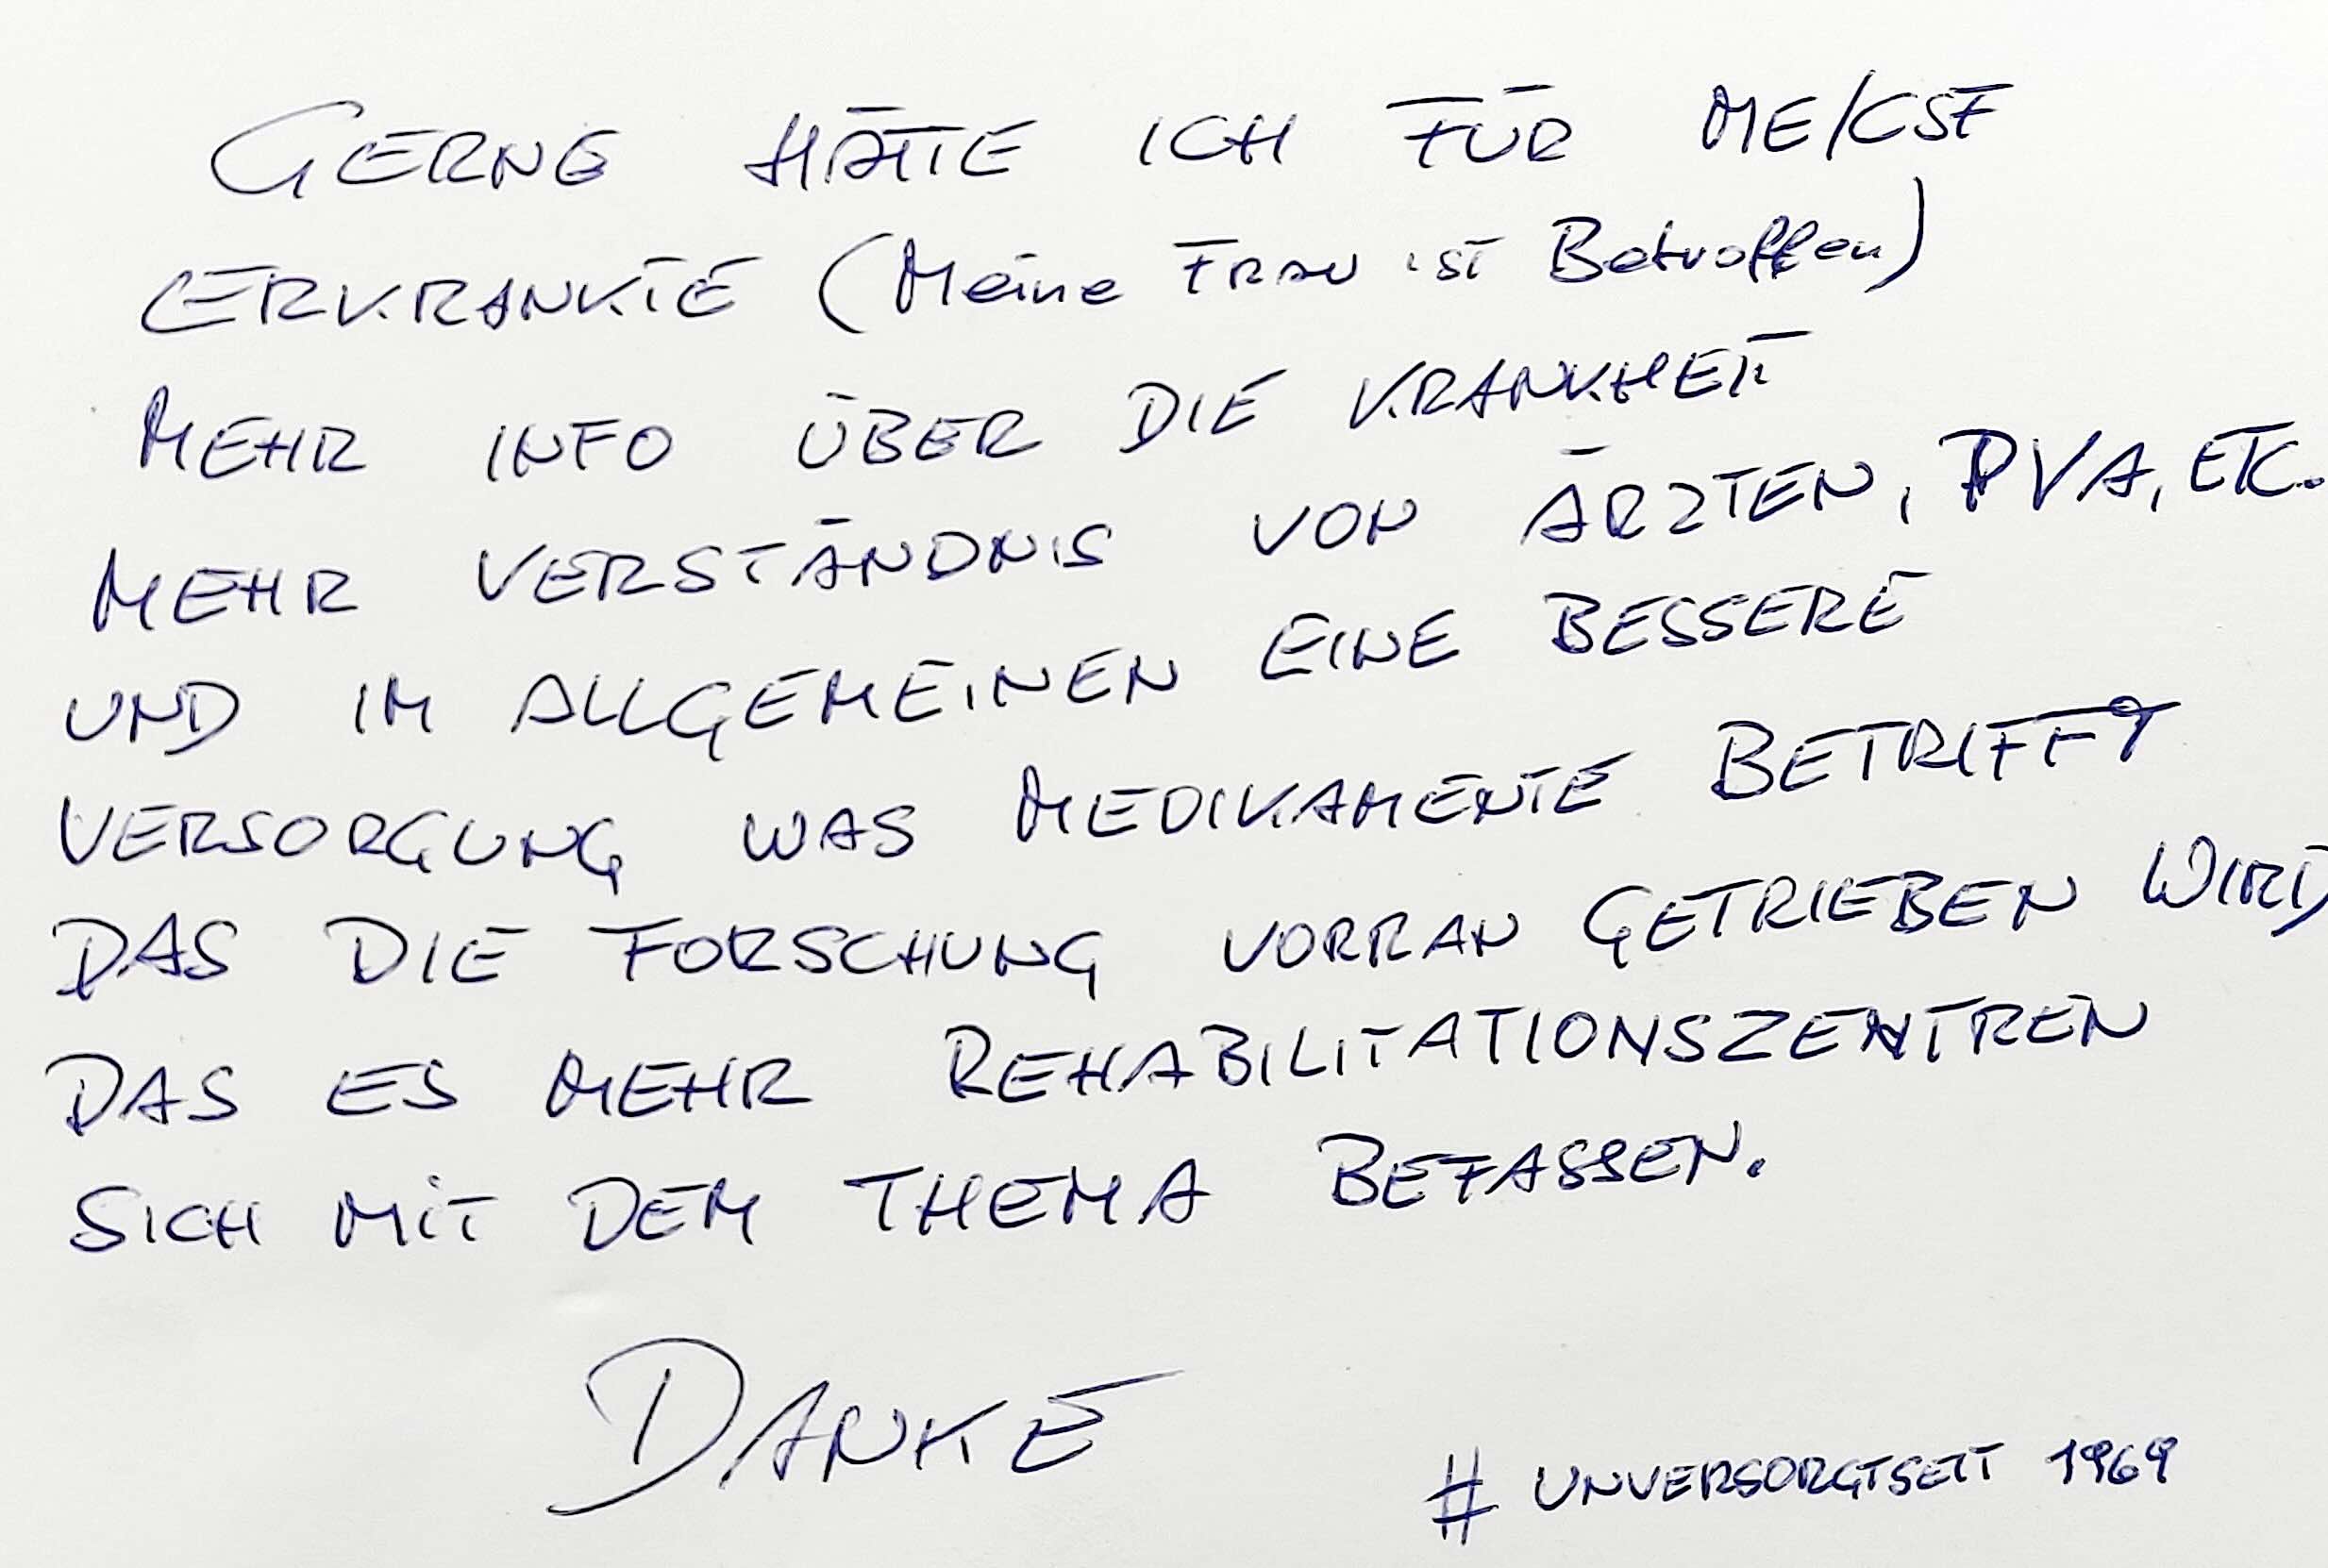 GERNE HÄTTE ICH FÜR ME/CSF
ERKRANKTE (Meine FRAU IST Betroffen)
MEHR INFO ÜBER DIE KRANKHEIT
MEHR VERSTÄNDNIS VON ÄRZTEN, PVA, ETC.
UND IM ALLGEMEINEN EINE BESSERE
VERSORGUNG WAS MEDIKAMENTE BETRIFFT
DAS DIE FORSCHUNG VORRAN GETRIEBEN WIRD
DAS ES MEHR REHABILITATIONSZENTREN
SICH MIT DEM THEMA BEFASSEN.
DANKE
# UNVERSORGTSEIT 1969